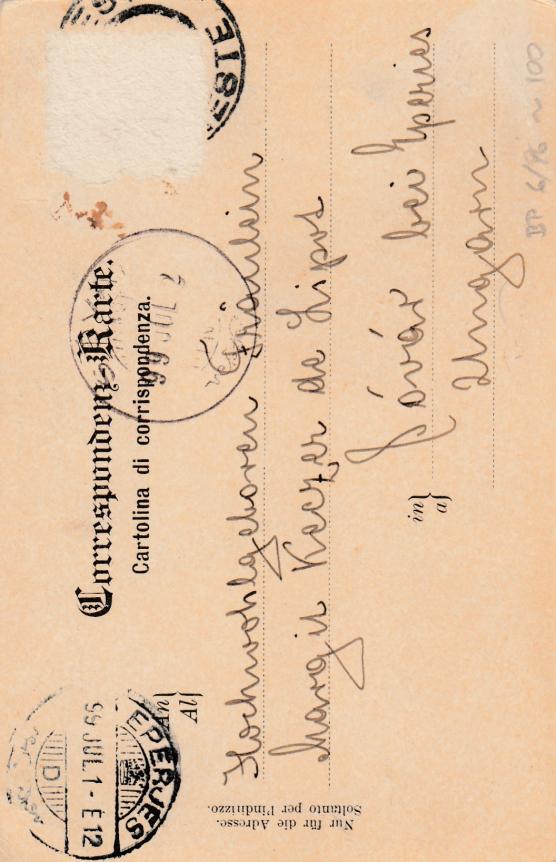 Correspondenz-Karte.
Cartolina di corrispondenza.
An
Al
Hochwohlgeboren Fräulein
Margit Keczer de Lipót
in
a
Sóvár bei Eperies
Ungarn
Nur für die Adresse.
Soltanto per l'indirizzo.
EPERJES
99 JUL. 1 - E 12
D
ESTE
99 JUL 2
6/96 ~ 100